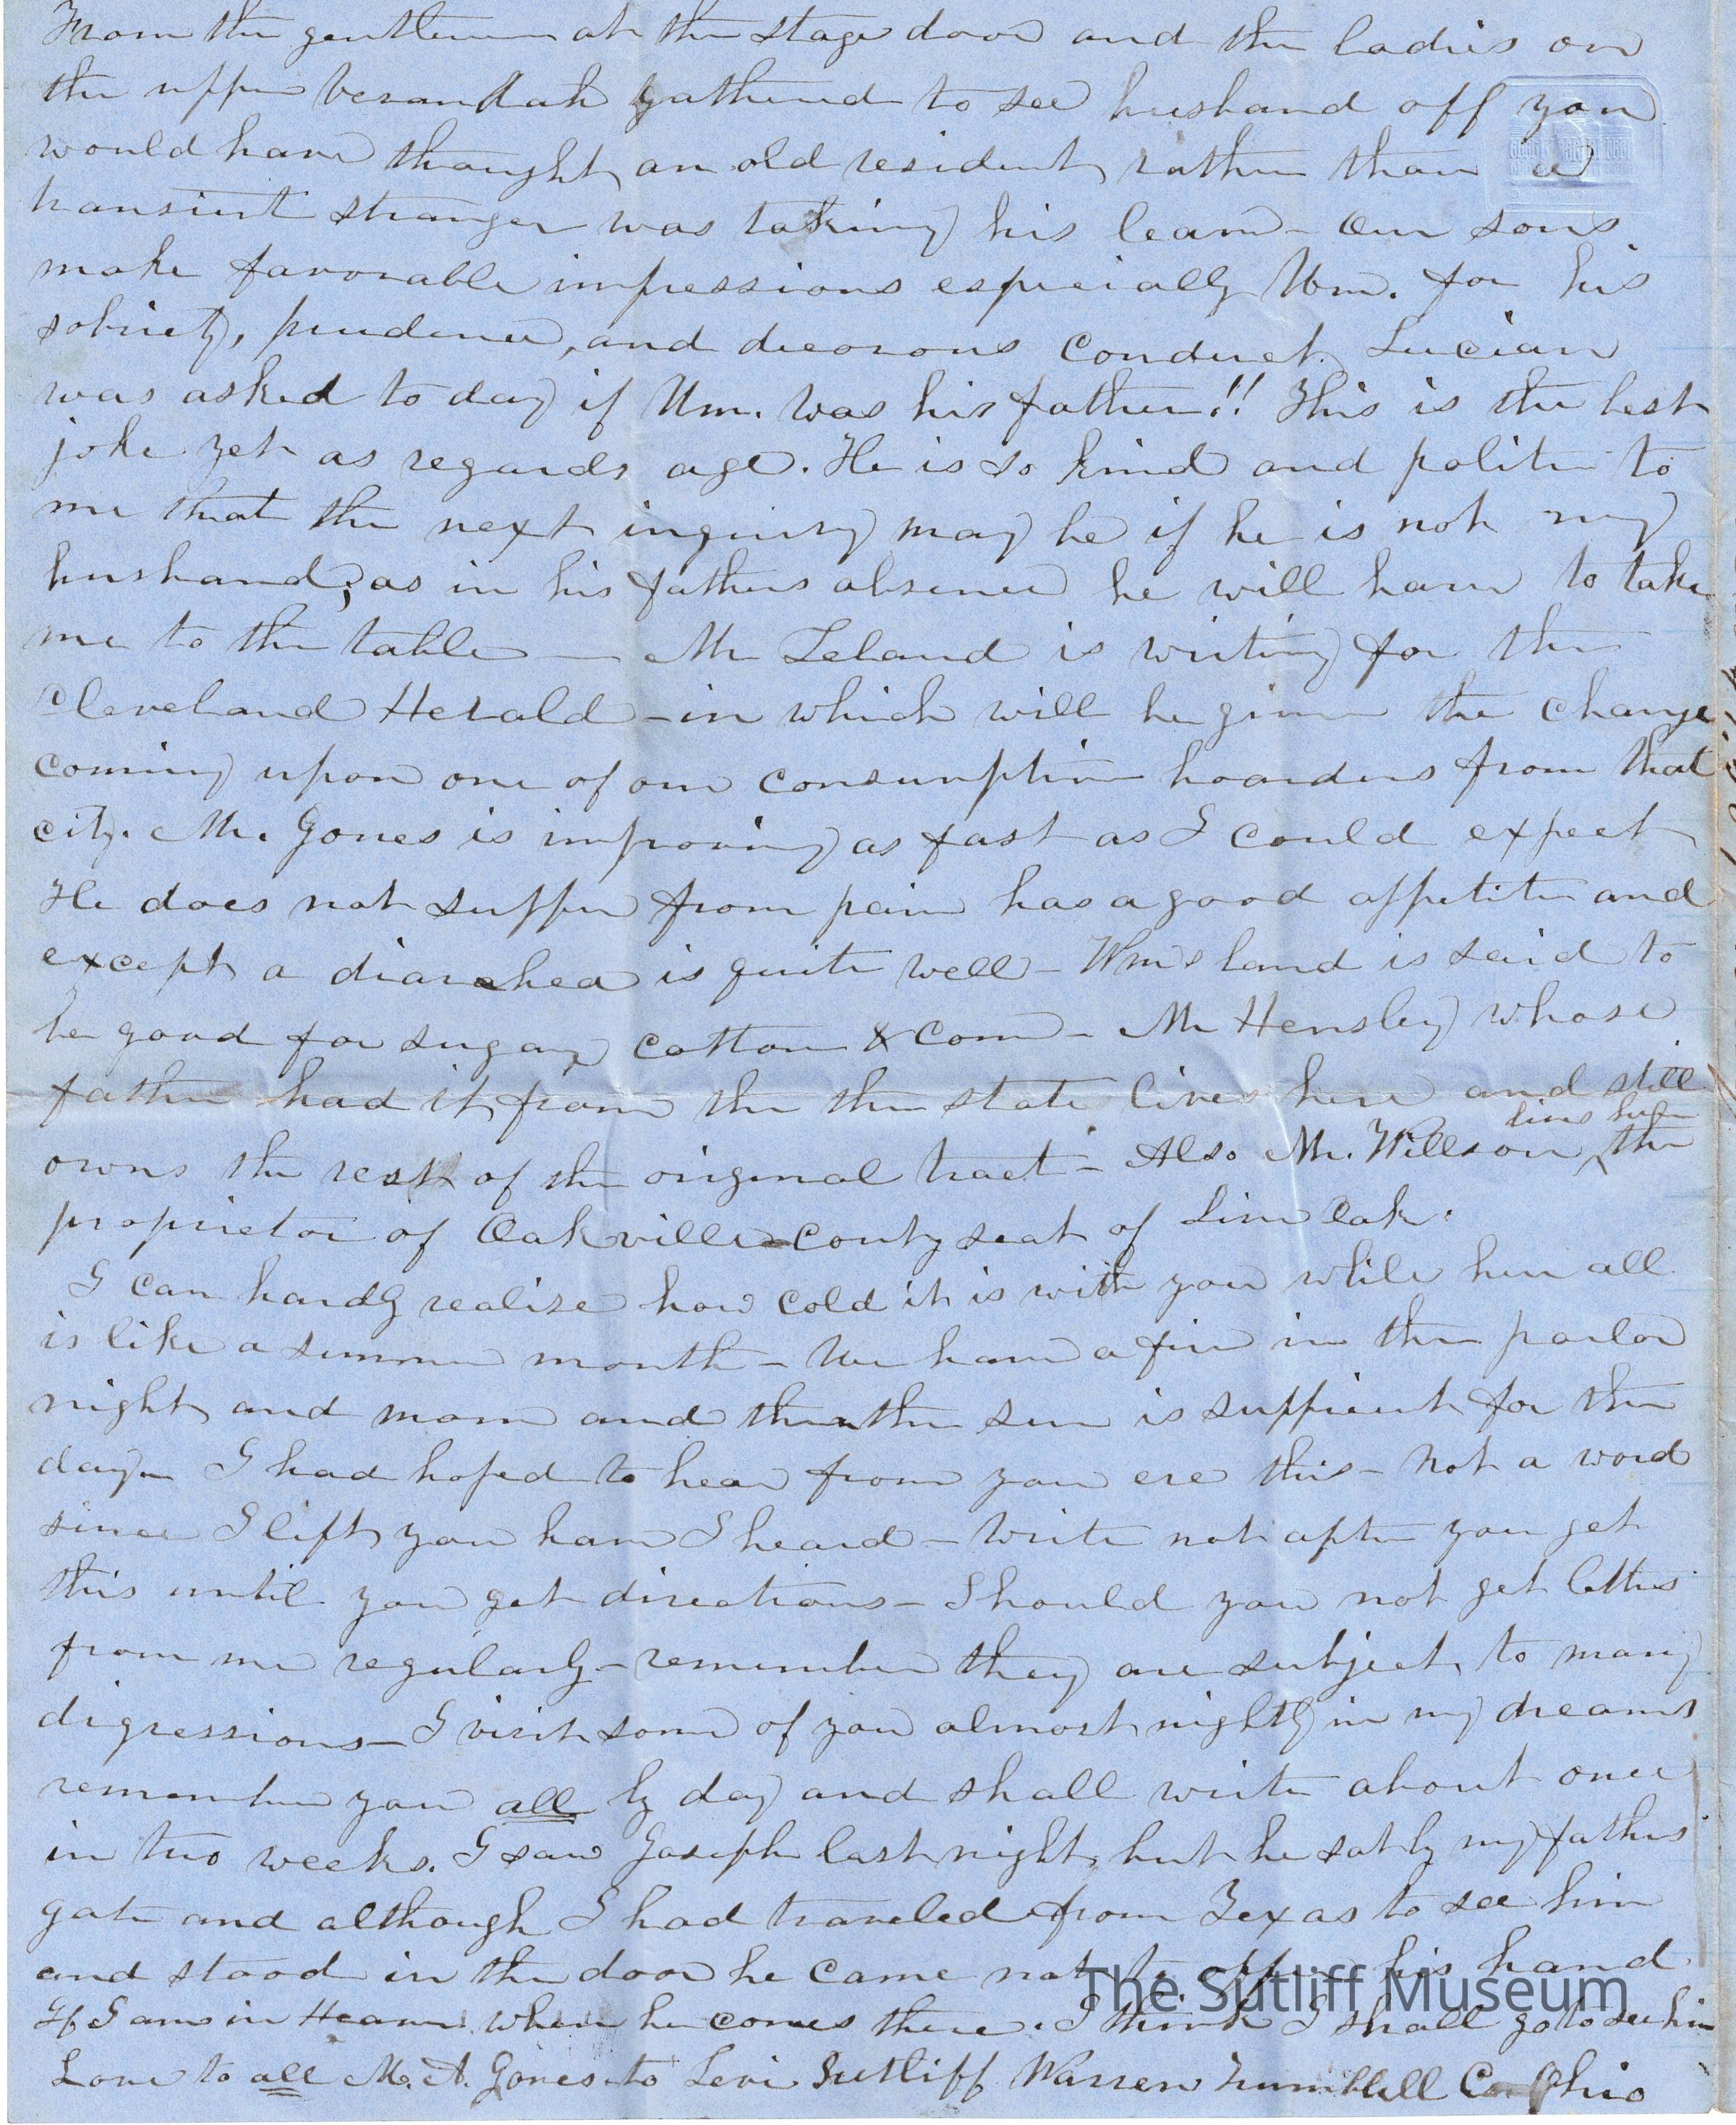 From the gentlemen at the stage door and the ladies on
the upper verandah gathered to see husband off you
would have thought an old resident rather than a
transient stranger was taking his leave - Our sons
make favorable impressions especially Wm. for his
sobriety, prudence, and decorous conduct. Lucian
was asked to day if Wm. was his father!! This is the best
joke yet as regards age. He is so kind and polite to
me that the next inquiry may be if he is not my
husband; as in his fathers absence he will have to take
me to the table — Mr Leland is writing for the
Cleveland Herald - in which will be given the change
coming upon one of our consumptive boarders from that
city. Mr. Jones is improving as fast as I could expect
He does not suffer from pain has a good appetite and
except a diarahea is quite well - Wm's land is said to
be good for sugar, cotton & corn - Mr Hensley whose
father had it from the the state lives here and still
owns the rest of the original tract - Also Mr. Willson lives here the
proprietor of Oakville county seat of Live Oak.
I can hardly realise how cold it is with you while here all
is like a summer month - We have a fire in the parlor
night and morn and then the sun is sufficient for the
day - I had hoped to hear from you ere this - not a word
since I left you have I heard - Write not after you get
this until you get directions - Should you not get letters
from me regularly - remember they are subject to many
digressions - I visit some of you almost nightly in my dreams
remember you all by day and shall write about once
in two weeks. I saw Joseph last night, but he sat by my fathers
gate and although I had traveled from Texas to see him
and stood in the door he came not to offer his hand.
The Sutliff Museum
If I am in Heaven when he comes there. I think I shall go to see him
Love to all M. A. Jones to Levi Sutliff Warren Trumbull Co. Ohio